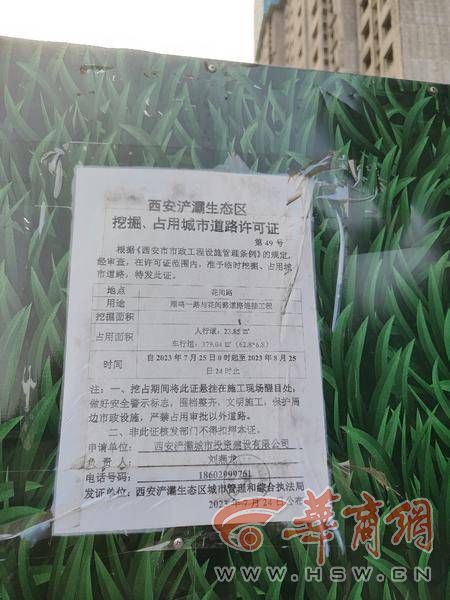 西安浐灞生态区
挖掘、占用城市道路许可证
第 49 号
根据《西安市市政工程设施管理条例》的规定,
经审查,在许可证范围内,准予临时挖掘、占用城
市道路,特发此证。
地点 花间路
用途 雁鸣一路与花间路道路连接工程
挖掘面积
占用面积 人行道:
车行道:379.04 ㎡(62.8*6.8)
时间 自 2023 年 7 月 25 日 0 时起至 2023 年 8 月 25
日 24 时止
注:一、挖占期间将此证悬挂在施工现场醒目处,
做好安全警示标志,围档整齐、文明施工,保护周
边市政设施,严禁占用审批以外道路。
二、非此证核发部门不得扣押本证。
申请单位: 西安浐灞城市投资建设有限公司
负责人:
电话号码: 18602999761
发证单位:西安浐灞生态区城市管理和综合执法局
2023 年 7 月 24 日公布
華商網
WWW.HSW.CN